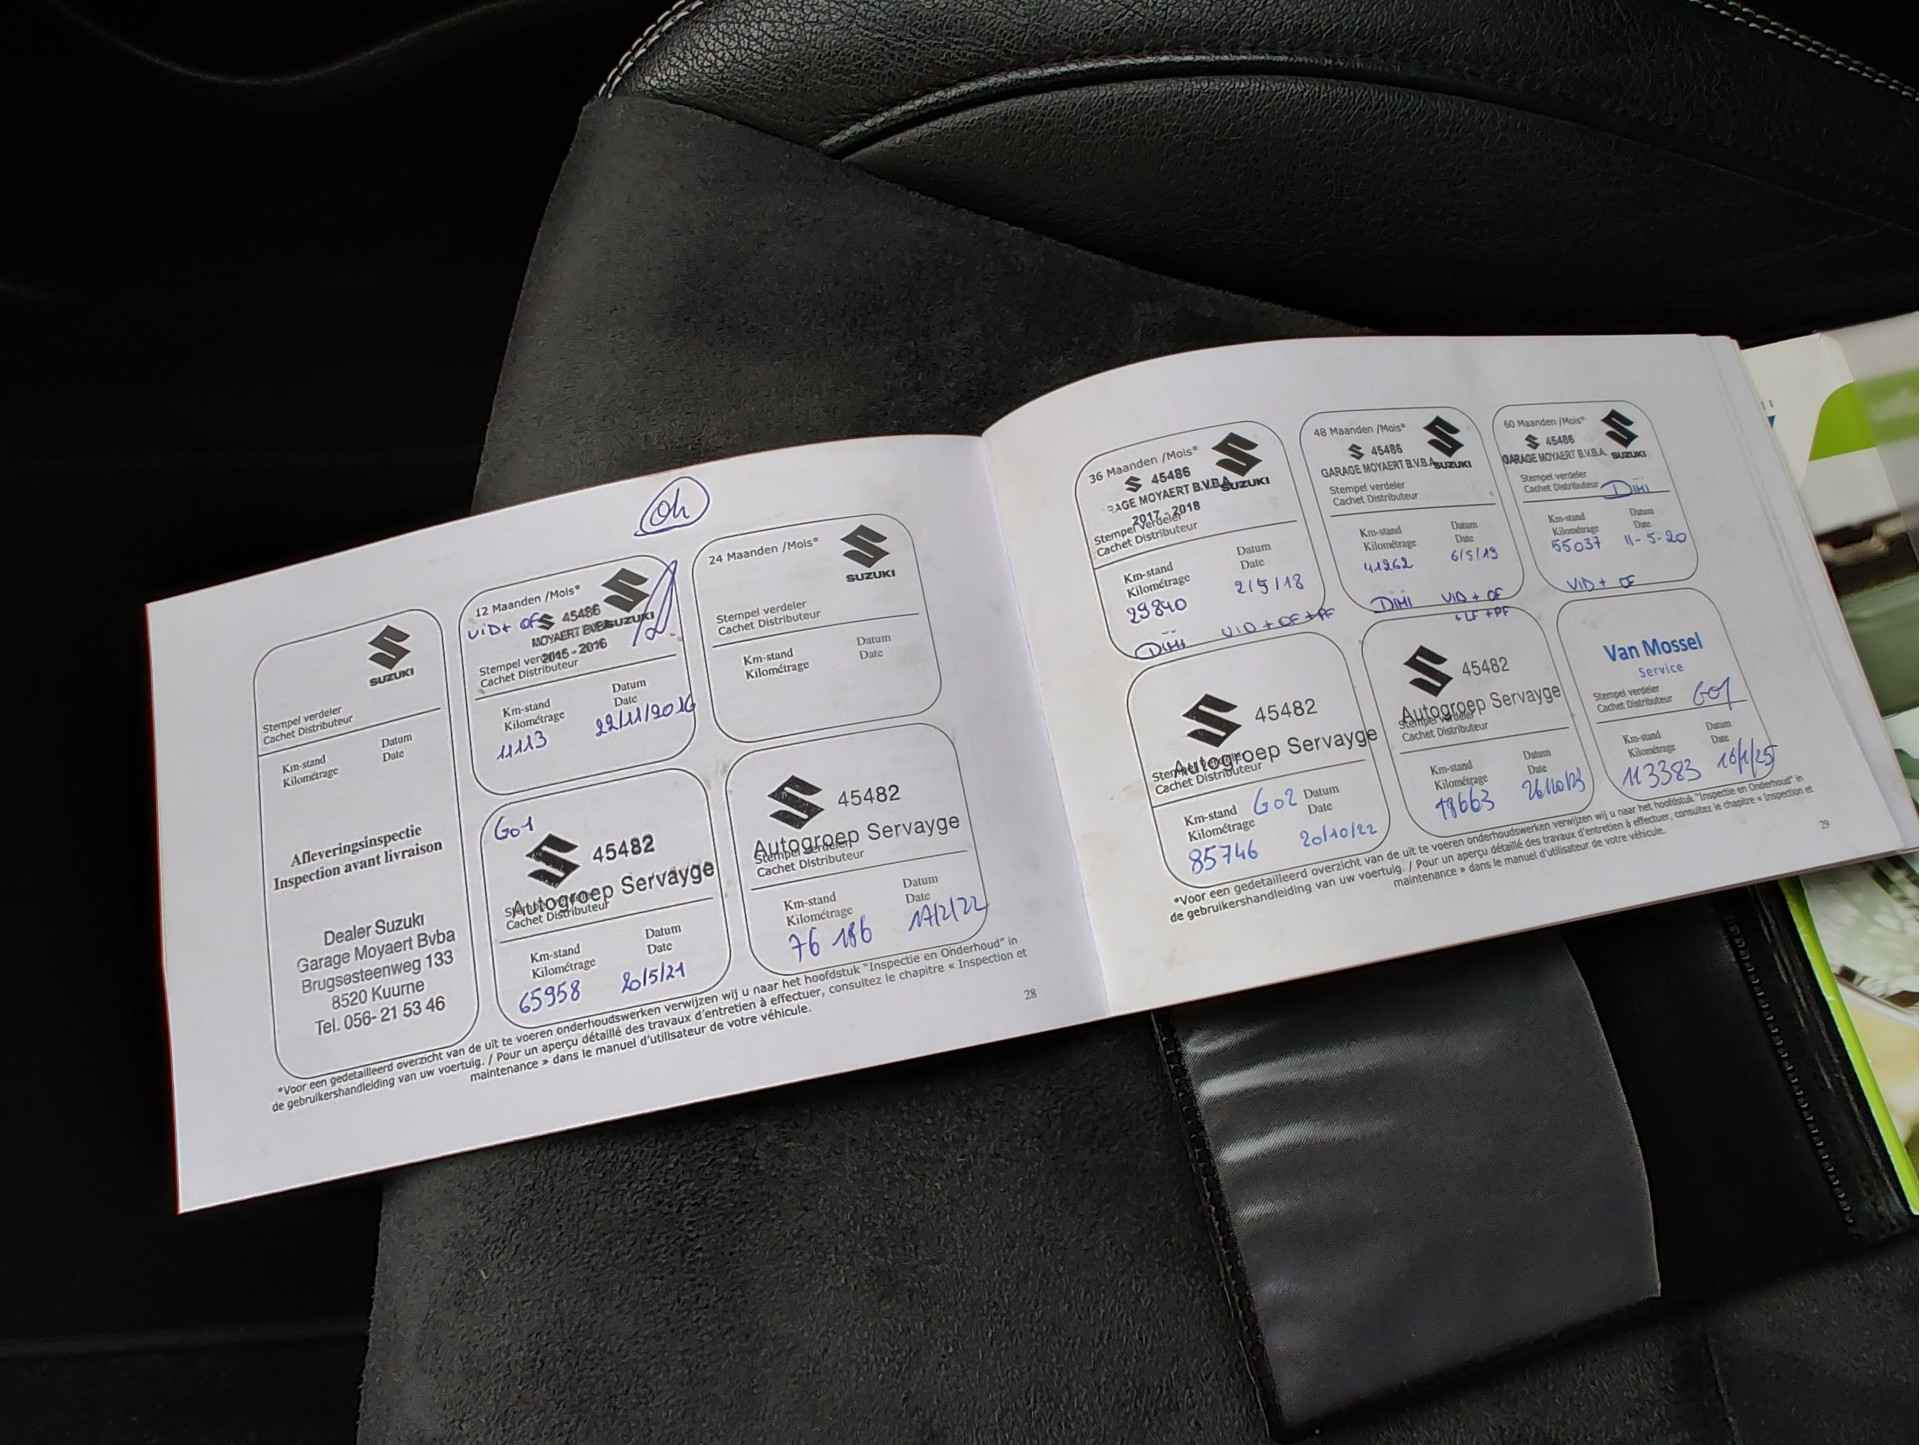 Oh
SUZUKI
Stempel verdeler
Cachet Distributeur
Km-stand
Kilométrage
Datum
Date
Afleveringsinspectie
Inspection avant livraison
Dealer Suzuki
Garage Moyaert Bvba
Brugsesteenweg 133
8520 Kuurne
Tel. 056- 21 53 46
12 Maanden /Mois*
ViD + OF 45486
MOYAERT SUZUKI
2015 - 2016
Stempel verdeler
Cachet Distributeur
Km-stand
Kilométrage
Datum
Date
11113
22/11/2016
24 Maanden /Mois*
SUZUKI
Stempel verdeler
Cachet Distributeur
Km-stand
Kilométrage
Datum
Date
G01
45482
Autogroep Servayge
Cachet Distributeur
Km-stand
Kilométrage
Datum
Date
65958
20/5/21
45482
Autogroep Servayge
Stempel verdeler
Cachet Distributeur
Km-stand
Kilométrage
Datum
Date
76 186
17/2/22
*Voor een gedetailleerd overzicht van de uit te voeren onderhoudswerken verwijzen wij u naar het hoofdstuk "Inspectie en Onderhoud" in
de gebruikershandleiding van uw voertuig. / Pour un aperçu détaillé des travaux d'entretien à effectuer, consultez le chapitre « Inspection et
maintenance » dans le manuel d'utilisateur de votre véhicule.
28
36 Maanden /Mois*
45486
MOYAERT B.V.B.A. SUZUKI
2017 - 2018
Stempel verdeler
Cachet Distributeur
Km-stand
Kilométrage
Datum
Date
29840
2/5/18
DiMi ViD + OF + PF
48 Maanden /Mois*
45486
GARAGE MOYAERT B.V.B.A. SUZUKI
Stempel verdeler
Cachet Distributeur
Km-stand
Kilométrage
Datum
Date
41262
6/5/19
DiMi ViD + OF
+ LF + PF
60 Maanden /Mois*
45486
GARAGE MOYAERT B.V.B.A. SUZUKI
Stempel verdeler
Cachet Distributeur DiMi
Km-stand
Kilométrage
Datum
Date
55037
11-5-20
ViD + OF
45482
Autogroep Servayge
Cachet Distributeur
Km-stand
Kilométrage
G02
Datum
Date
85746
20/10/22
45482
Autogroep Servayge
Stempel verdeler
Cachet Distributeur
Km-stand
Kilométrage
Datum
Date
26/10/23
Van Mossel
Service
Stempel verdeler
Cachet Distributeur
G01
Km-stand
Kilométrage
Datum
Date
113383
16/1/25
*Voor een gedetailleerd overzicht van de uit te voeren onderhoudswerken verwijzen wij u naar het hoofdstuk "Inspectie en Onderhoud" in
de gebruikershandleiding van uw voertuig. / Pour un aperçu détaillé des travaux d'entretien à effectuer, consultez le chapitre « Inspection et
maintenance » dans le manuel d'utilisateur de votre véhicule.
29